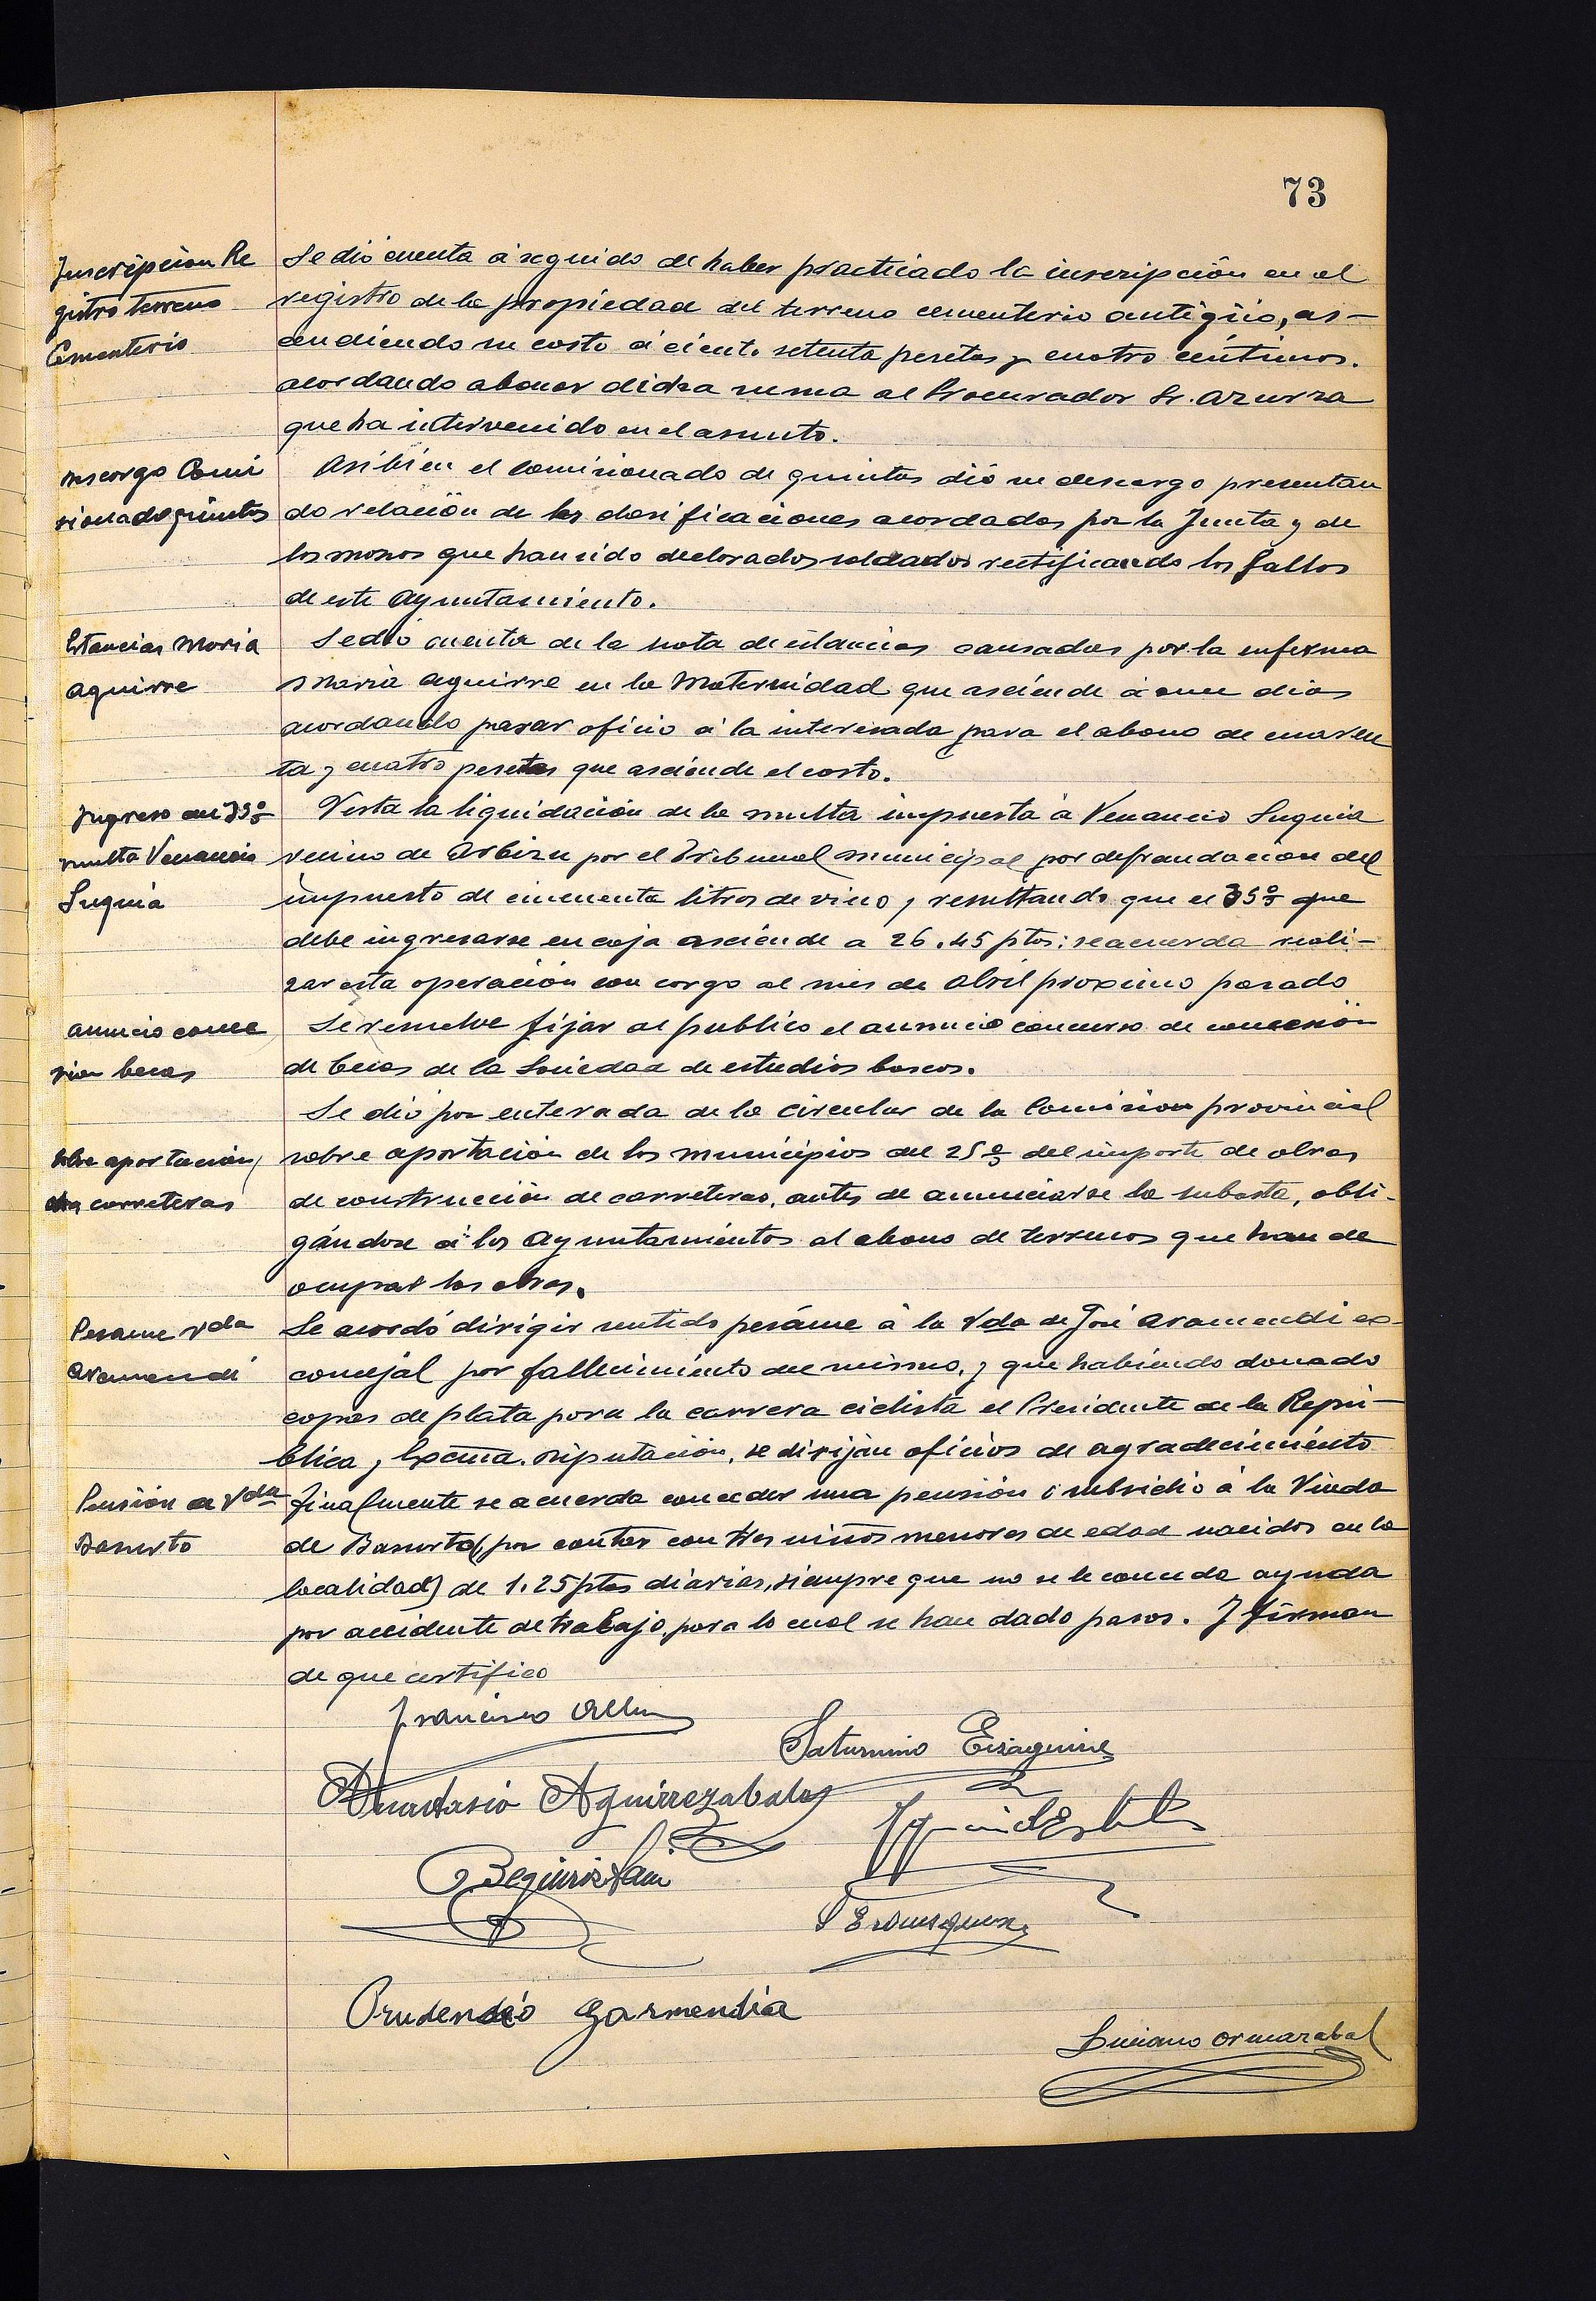 73
Inscripcion Re
gistro terreno
Cementerio
Se dió cuenta á seguido de haber practicado la inscripción en el
registro de la propiedad del terreno cementerio antigüo, as-
cendiendo su costo á ciento setenta pesetas y cuatro céntimos.
acordando abonar dicha suma al Procurador Sr. Azurza
que ha intervenido en el asunto.
Descargo Comi
sionado quintas
Asibien el Comisionado de quintas dió su descargo presentan
do relación de las clasificaciones acordadas por la Junta y de
los mozos que han sido declarados soldados rectificando los fallos
de este Ayuntamiento.
Estancias Maria
Aguirre
Se dió cuenta de la nota de estancias causadas por la enferma
Maria Aguirre en la Maternidad que asciende á once dias
acordando pasar oficio á la interesada para el abono de cuaren
ta y cuatro pesetas que asciende el costo.
Ingreso del 35%
multa Venancio
Suquia
Vista la liquidación de la multa impuesta á Venancio Suquia
vecino de Arbizu por el Tribunal municipal por defraudacion del
impuesto de cincuenta litros de vino y resultando que el 35% que
debe ingresarse en caja asciende a 26.45 ptas: se acuerda reali-
zar esta operación con cargo al mes de Abril proximo pasado
Anuncio conce
sion becas
Se resuelve fijar al publico el anuncio concurso de concesión
de becas de la Sociedad de estudios bascos.
Se dió por enterada de la circular de la Comision provincial
Sobre aportación
carreteras
sobre aportación de los municipios del 25% del importe de obras
de construcción de carreteras, antes de anunciarse la subasta, obli-
gándose á los Ayuntamientos al abono de terrenos que han de
ocupar las obras.
Pesame Vda
Aramendi
Se acordó dirigir sentido pesáme á la Vda de José Aramendi ex-
concejal por fallecimiento del mismo, y que habiendo donado
copas de plata para la carrera ciclista el Presidente de la Repú-
blica y Excma. Diputación, se dirijan oficios de agradecimiento
Pensión a Vda
Basurto
Finalmente se acuerda conceder una pensión ó subsidio á la Viuda
de Basurto (por contar con tres niños menores de edad nacidos en la
localidad) de 1.25 ptas diarias, siempre que no se le conceda ayuda
por accidente de trabajo, para lo cual se han dado pasos. Y firman
de que certifico
Francisco
Saturnino Eizaguirre
Anastasio Aguirrezabala
Beguiristain
Prudencio Garmendia
Luciano Ormazabal